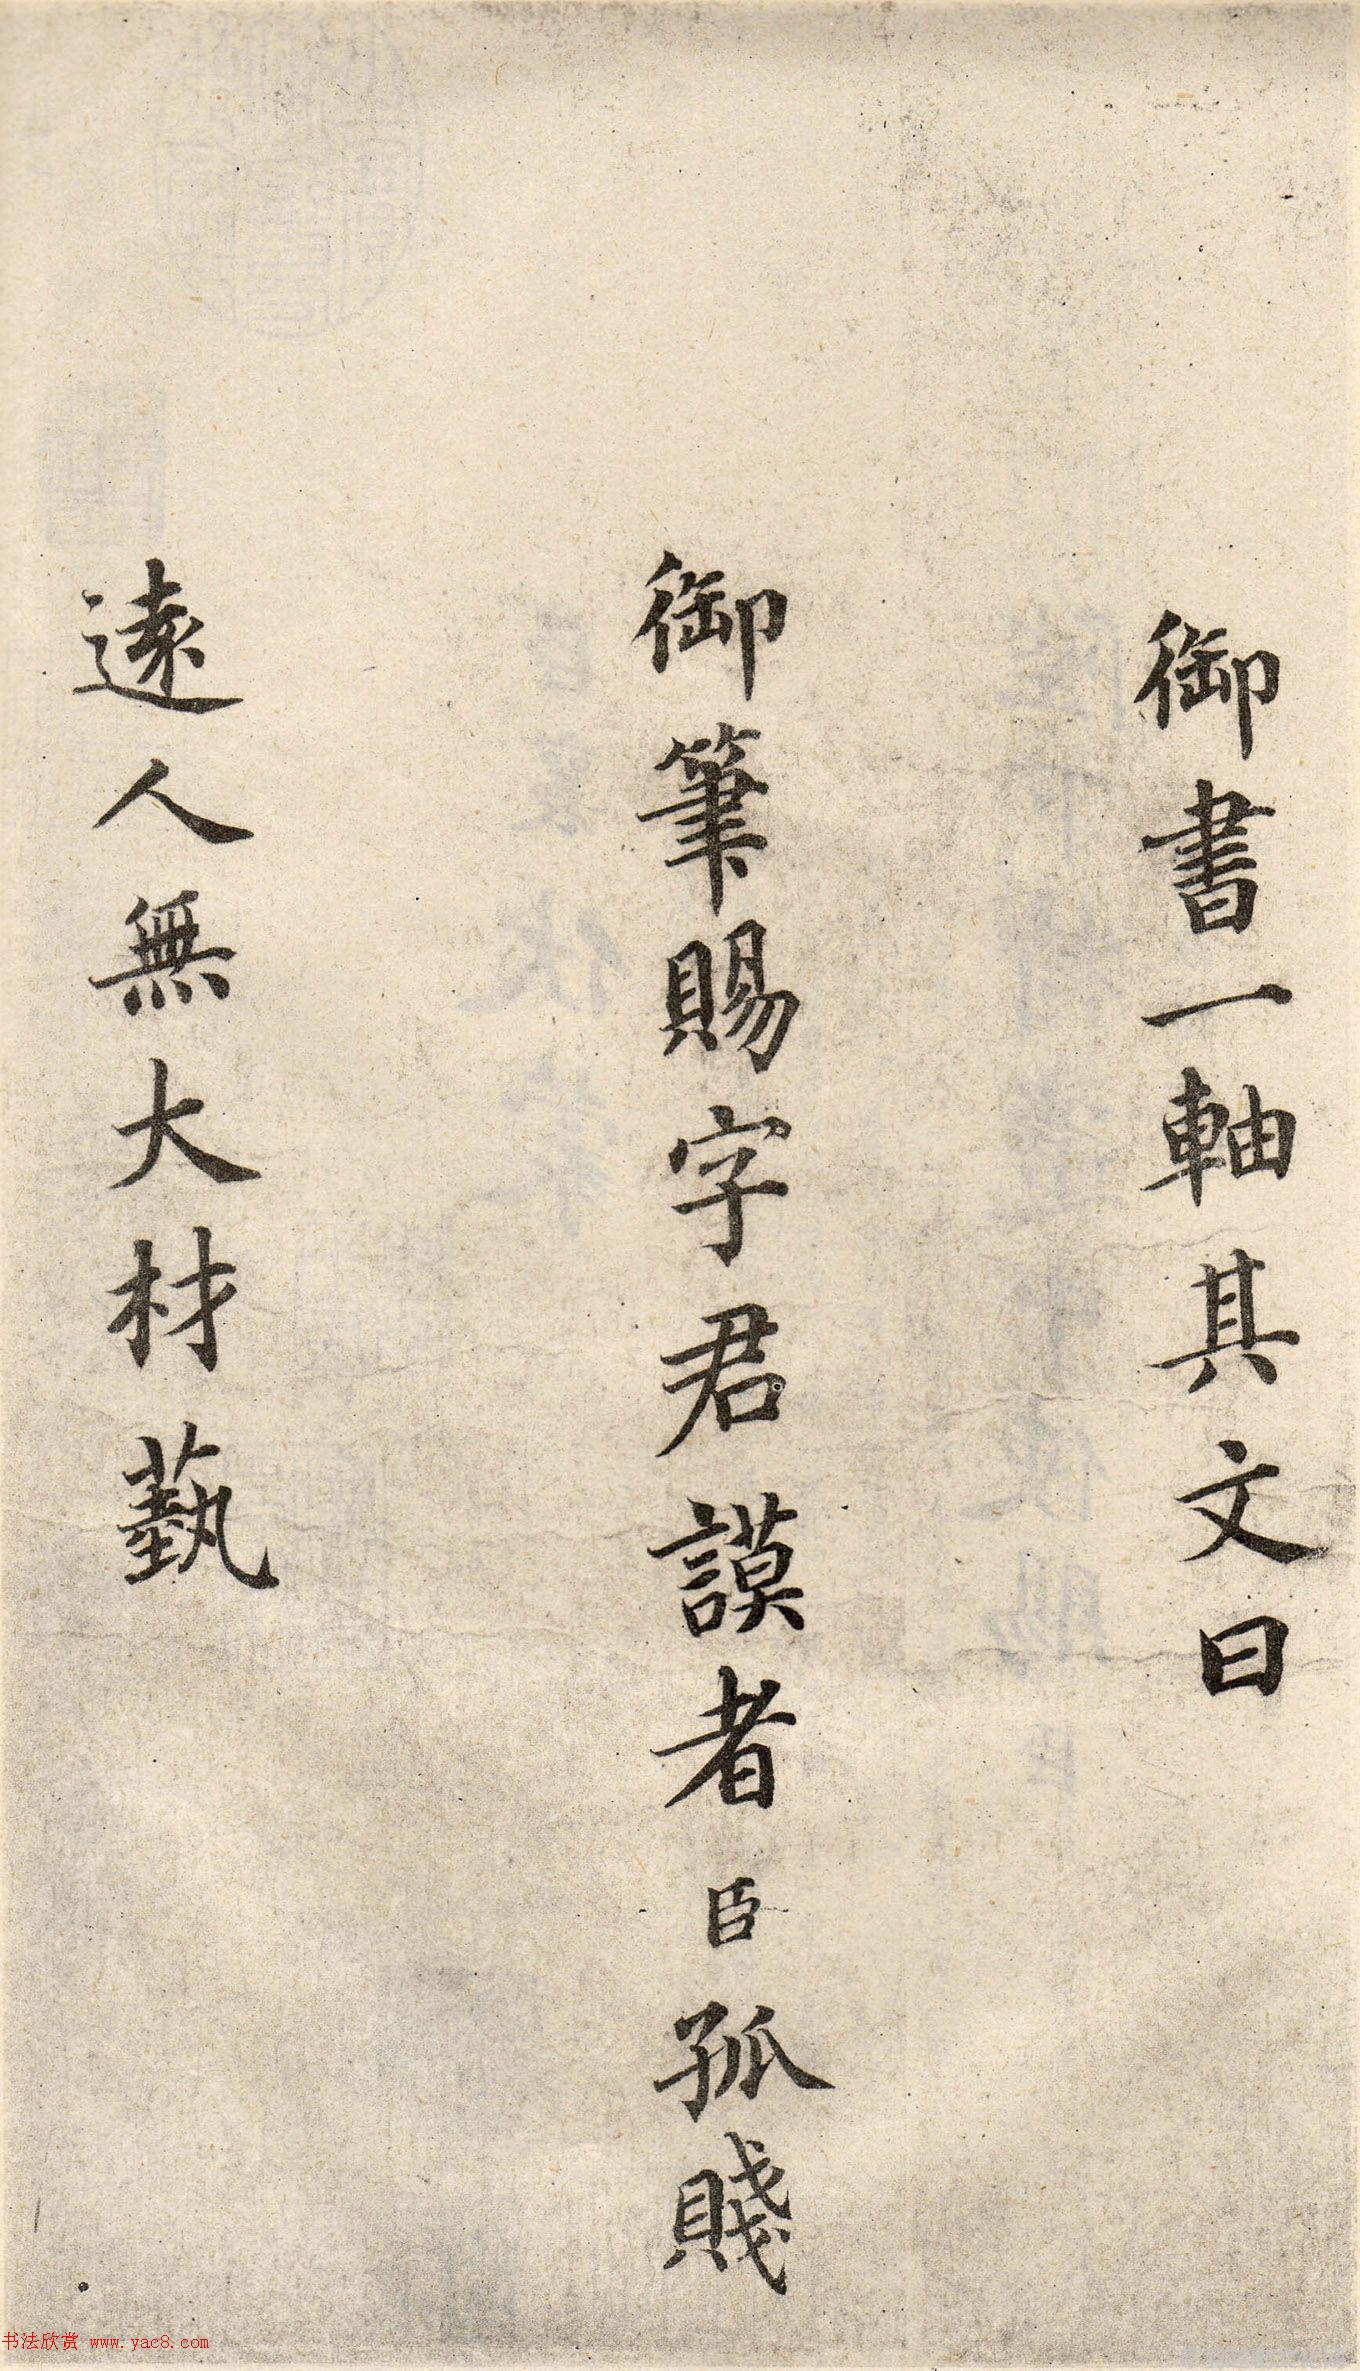 御書一軸其文曰
御筆賜字君謨者臣孤賤
遠人無大材藝
书法欣赏 www.yac8.com